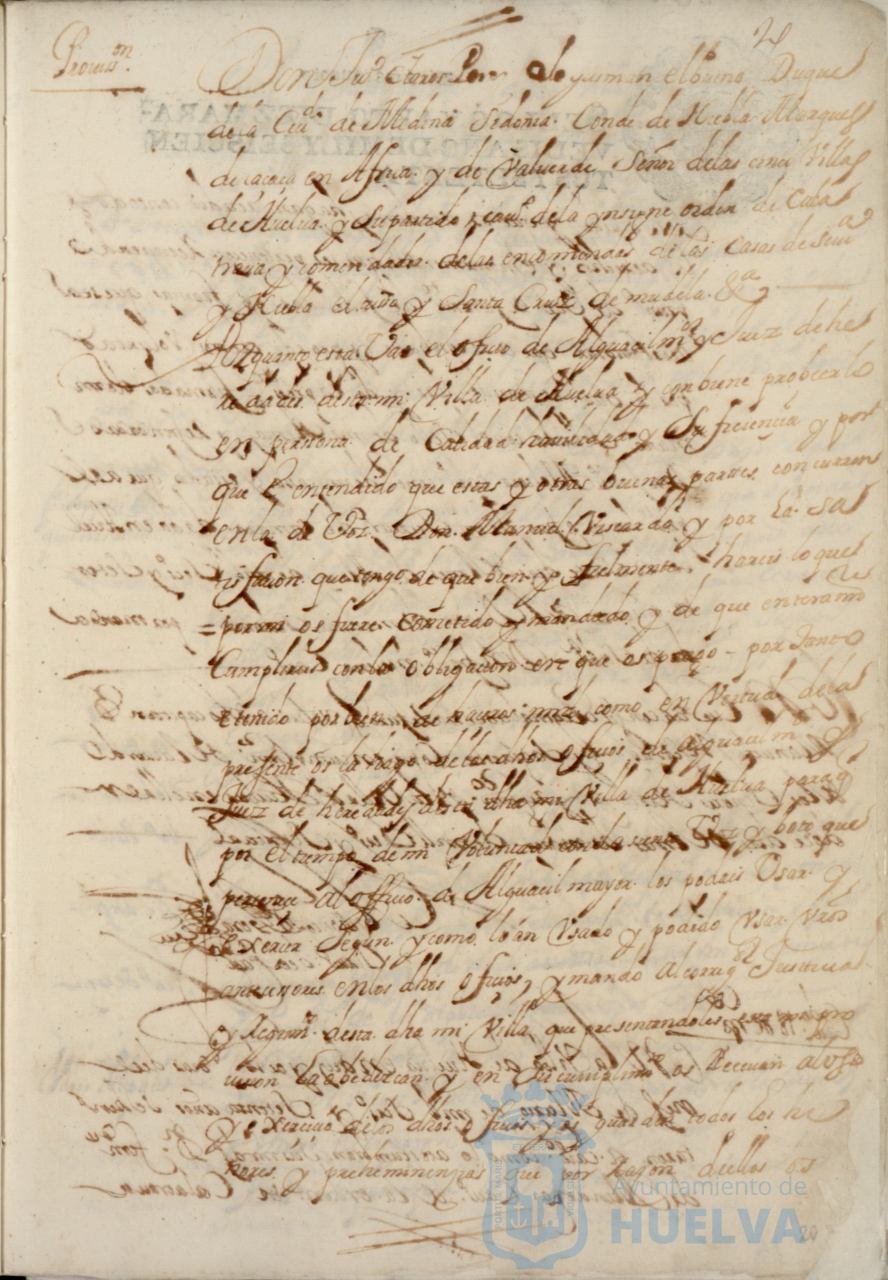 20
Prouisson
Don Juo Claros Perez de guzman el bueno Duque
de la Ciud de Medina Sidonia Conde de Niebla Marques
de caçaça en Africa y de Valuerde Señor de las cinco Villas
de Huelua y su partido y cauo de la ynsigne orden de Cala
traua y comendador de las encomiendas de las Casas de Seuia
y Niebla y Santa Cruz de mudela &a
Por quanto esta Vaco el ofisio de Alguacil mor y Juez de he
redades desta mi Villa de Huelua y conbiene probeerlo
en persona de Calidad y Suficiencia y por
que e entendido que estas y otras buenas partes concurren
en la de Vos Don Manuel y por la Sa
tisfacion que tengo de que bien y fielmente hareis lo que
por mi os fuere Cometido y mandado y de que enteramte
Cumplireis con la obligacion en que os pongo por tanto
e tenido por bien de haceros mrd como en Virtud de la
presente os la hago de los dhos ofisios de alguacil mor y
Juez de heredades desta dha mi Villa de Huelua para q
por el tiempo de mi Voluntad Voz y boto que
pertenece al officio de Alguacil mayor los podais Vsar y
Exercer Segun y como lo an Vsado y podido Vsar Vros
antesesores en los dhos ofisios y mando al correg Justicia
y Regimto desta dha mi Villa que presentandoles esta mi pro
uision la obedezcan y en Su cumplimto os Reciuan al Vso
y exercicio de los dhos ofisios y os guarden todos los ho
nores y preheminenzias que por Raçon de ellos os
Ayuntamiento de
HUELVA
20